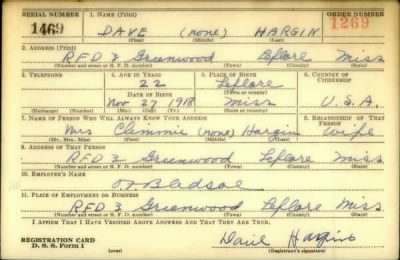 SERIAL NUMBER 1. NAME (Print) ORDER NUMBER
1469 DAVE (none) HARGIN 1269
(First) (Middle) (Last)
2. ADDRESS (Print)
RFD 3 Greenwood Leflore Miss
(Number and street or R. F. D. number) (Town) (County) (State)
3. TELEPHONE 4. AGE IN YEARS 5. PLACE OF BIRTH 6. COUNTRY OF CITIZENSHIP
22 Leflore
DATE OF BIRTH (Town or county)
Nov 27 1918 Miss U.S.A.
(Exchange) (Number) (Mo.) (Day) (Yr.) (State or country)
7. NAME OF PERSON WHO WILL ALWAYS KNOW YOUR ADDRESS 8. RELATIONSHIP OF THAT PERSON
Mrs Clemmie (none) Hargin Wife
(Mr., Mrs., Miss) (First) (Middle) (Last)
9. ADDRESS OF THAT PERSON
RFD 3 Greenwood Leflore Miss
(Number and street or R. F. D. number) (Town) (County) (State)
10. EMPLOYER'S NAME
Bledsoe
11. PLACE OF EMPLOYMENT OR BUSINESS
RFD 3 Greenwood Leflore Miss
(Number and street or R. F. D. number) (Town) (County) (State)
I AFFIRM THAT I HAVE VERIFIED ABOVE ANSWERS AND THAT THEY ARE TRUE.
REGISTRATION CARD
D. S. S. Form 1 (over) Hargin
(Registrant's signature)